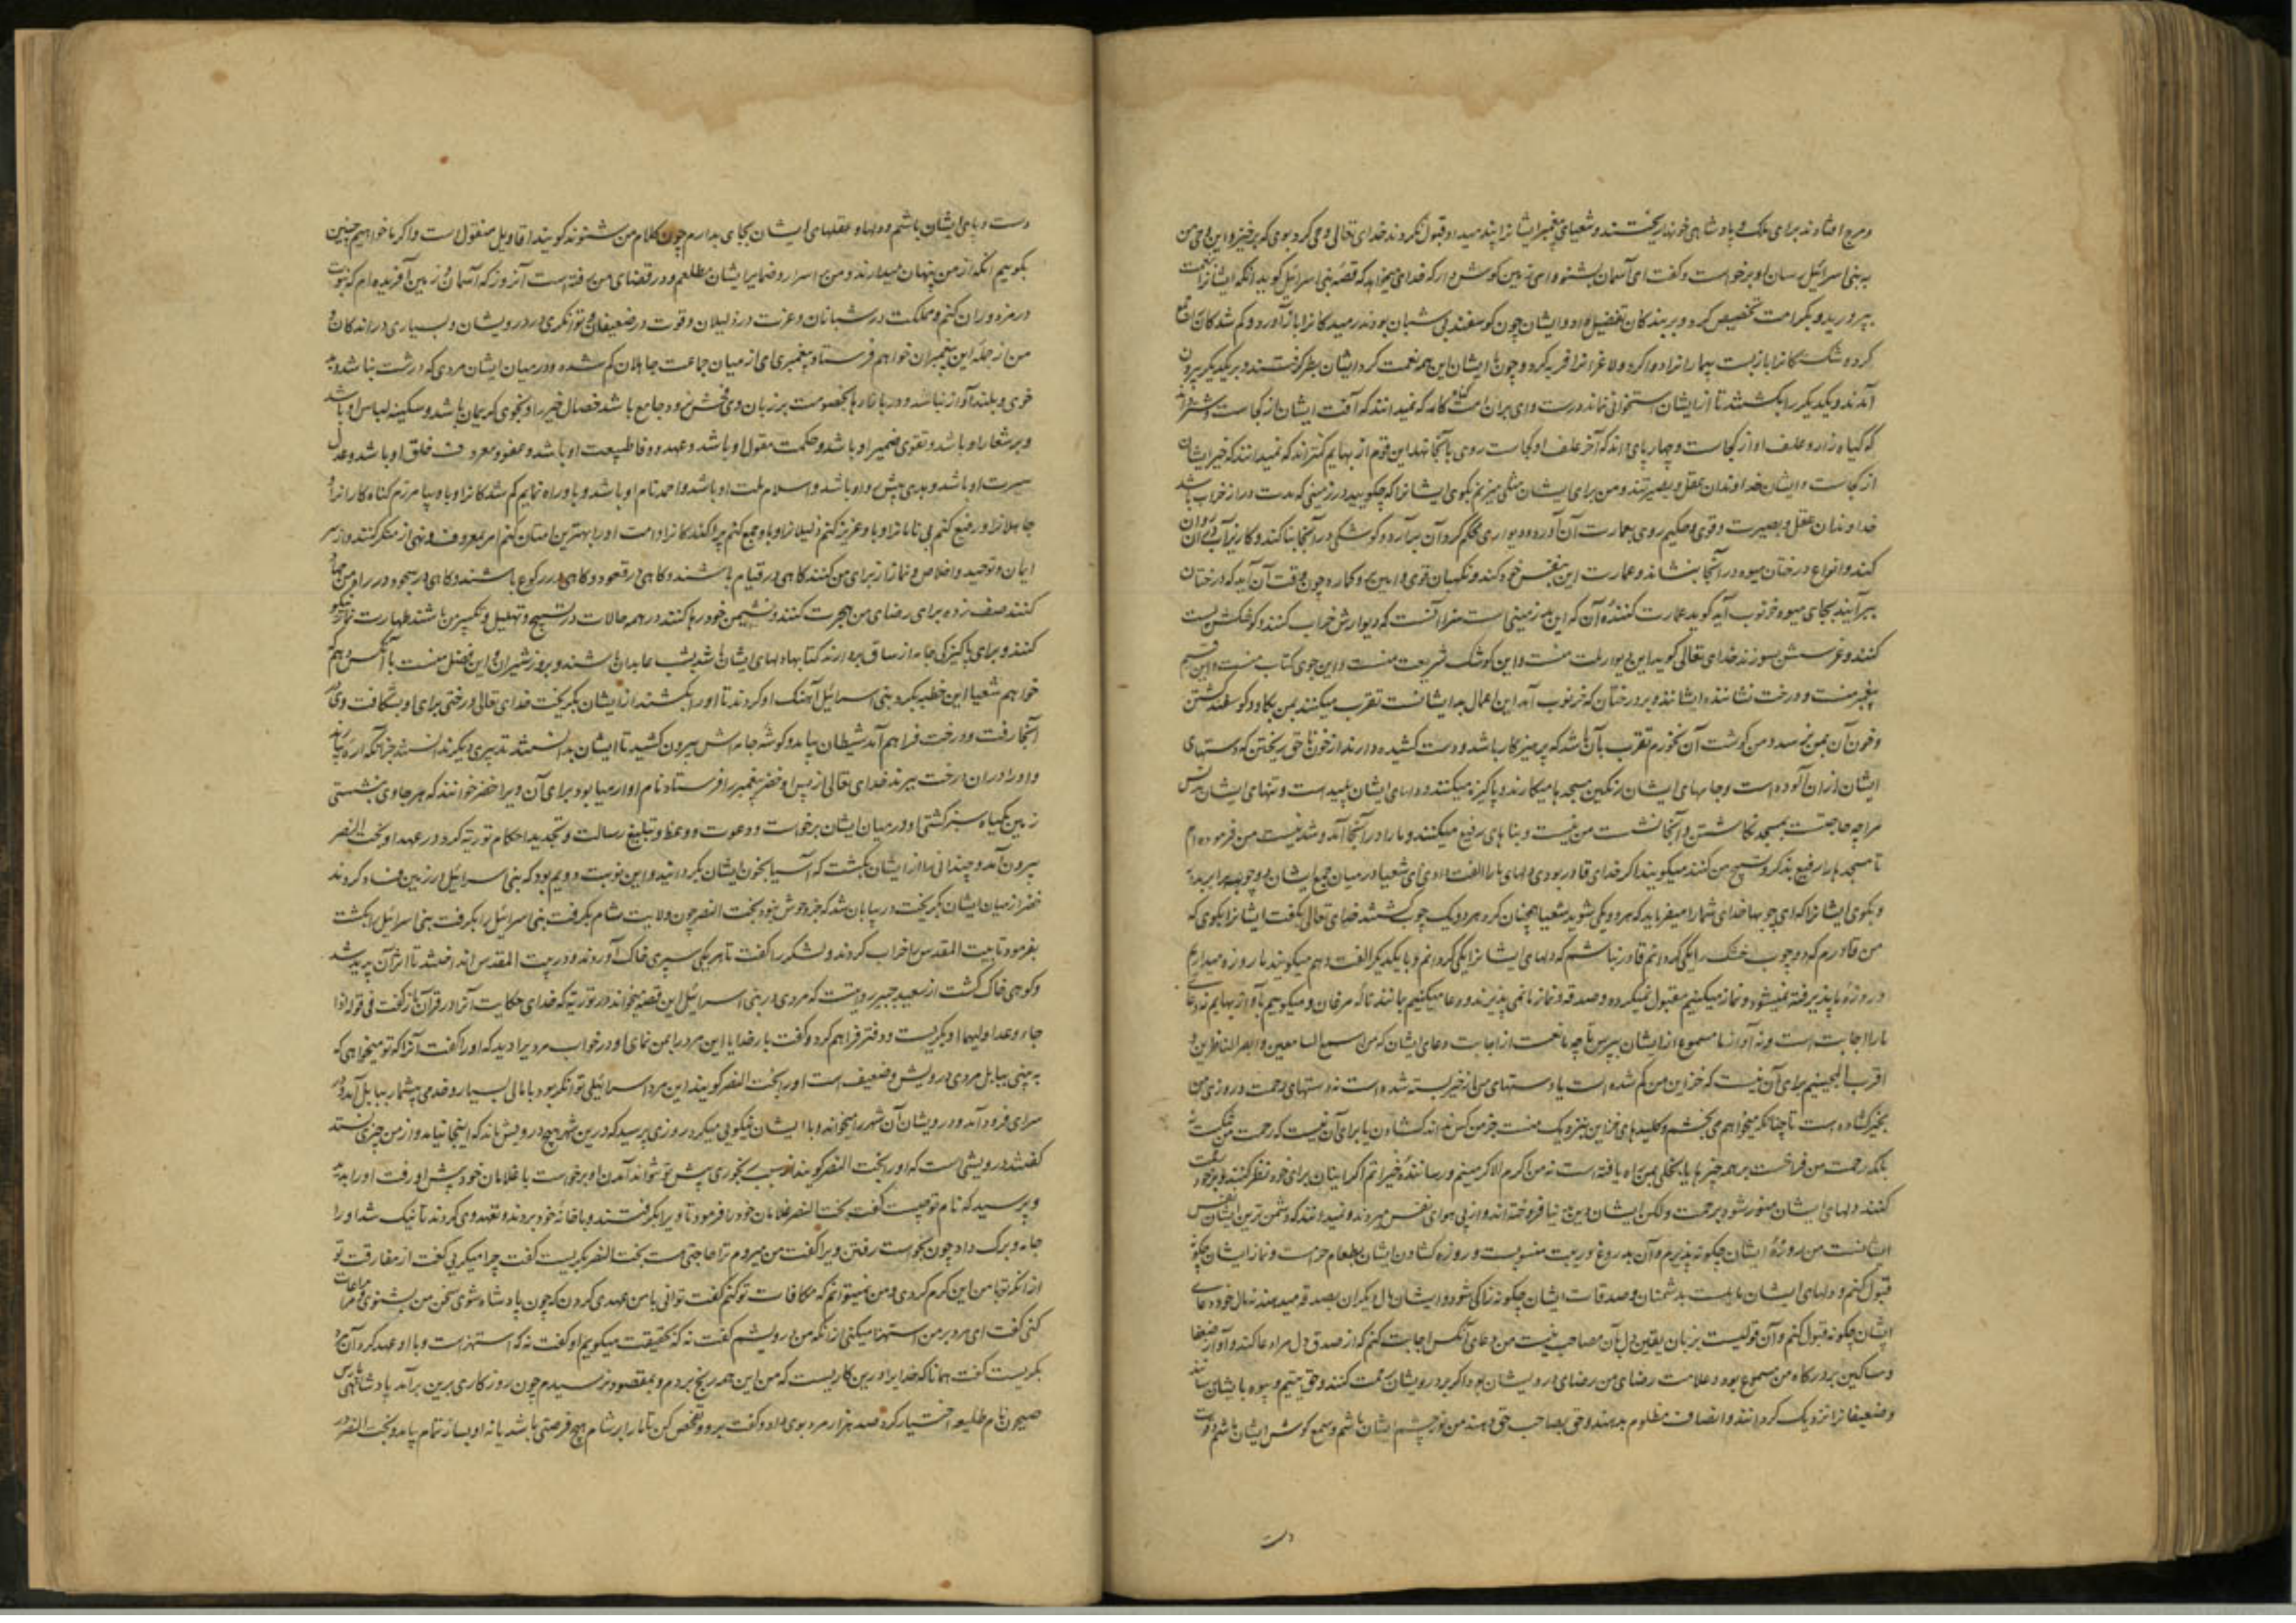 ومرج افتادند برای ملک و پادشاهی خونها ریختند و شعیای پیغمبر ایشانرا پند میداد و قبول نکردند خدای تعالی وحی کرد بوی که برخیز و این وحی من
به بنی اسرائیل رسان او برخواست و گفت ای آسمان بشنو و ای زمین گوش دار که خدای میخواهد که قصه بنی اسرائیل گوید آنکه ایشانرا بنعمت
بپرورید و بکرامت تخصیص کرد و بر بندکان تفضیل داد و ایشان چون گوسفند بی شبان بودند رمیدکانرا باز آورد و کم شدکانرا جمع
کرد و شکستکانرا باز بست بیمارانرا دوا کرد و لاغرانرا فربه کرد و چون با ایشان این همه نعمت کرد ایشان بطر گرفتند و بر یکدیگر بیرون
آمدند و یکدیگر را بکشتند تا از ایشان استخوانی نماند درست وای بران امت کناه کار که نمیدانند که آفت ایشان از کجاست و شتر داند
که گیاه زار و علف او از کجاست و چهارپای داند که آخر علف او کجاست روی بآنجا نهد این قوم از بهایم کمتراند که نمیدانند که خیر ایشان
از کجاست و ایشان خداوندان عقل و بصیرتند و من برای ایشان مثلی میزنم بگوی ایشانرا که چگویید در زمینی که مدت دراز خراب باشد
خداوندان عقل و بصیرت و قوی و حکیم روی بعمارت آن آورد و دیواری محکم گرد آن برآرد و کوشکی در آنجا بنا کند و کاریز آب روان
کند و انواع درختان میوه در آنجا بنشاند و عمارت این بنفس خود کند و نگهبان قوی و امین بر و کمارد چون وقت آن آید که درختان
ببر آیند بجای میوه خرنوب آید گوید عمارت کننده آن که این بد زمینی است سزا آنست که دیوارش خراب کنند و کوشکش پست
کنند و غرسش بسوزند خدای تعالی گوید این دیوار ملت منست و این کوشک شریعت منست و این جوی کتاب منست و این قیم
پیغمبر منست و درخت نشانده ایشانند و بر درختان که خرنوب آمد این اعمال بد ایشانست تقرب میکنند بمن بگاو و گوسفند کشتن
و خون آن بمن نرسد و من گوشت آن نخورم تقرب بآن باشد که پرهیزکار باشد و دست کشیده دارند از خون ناحق ریختن که دستهای
ایشان ازان آلوده است و جامهای ایشان رنگین مسجدها میکارند و پاکیزه میکنند و دلهای ایشان پلید است و تنهای ایشان نجس
مرا چه حاجتست بمسجد نگاشتن و آنجا نشست من نیست و بناهای رفیع میکنند و مارا در آنجا آمد و شد نیست من فرموده ام
تا مسجد هارا رفیع بذکر و تسبیح من کنند میکویند اگر خدای قادر بودی دلهای مارا الفت دادی ای شعیا در میان جمع ایشان دو چوب برابر بدار
و بگوی ایشانرا که ای چوبها خدای شمارا میفرماید که هر دو یکی شوید شعیا همچنان کرد هر دو یک چوب گشتند خدای تعالی گفت ایشانرا بگوی که
من قادرم که دو چوب خشک را یکی گردانم قادر نباشم که دلهای ایشانرا یکی گردانم و با یکدیگر الفت دهم میکویند ما روزه میداریم
و روزه ما پذیرفته نمیشود و نماز میکنیم مقبول نمیگردد و صدقه و نماز ما نمی پذیرند و دعا میکنیم مانند ناله مرغان و میگوییم باواز بهایم نه دعای
مارا اجابت است و نه آواز ما مسموع از ایشان بپرس تا چه مانعست از اجابت دعای ایشان که من اسمع السامعین و ابصر الناظرین و
اقرب المجیبینم برای آن نیست که خزاین من کم شده است یا دستهای من از خیر بسته شده است نه دستهای رحمت و روزی من
بخیر گشاده است تا چنانکه میخواهم می بخشم و کلیدهای خزاین بنزدیک منست جز من کس نداند گشادن یا برای آن نیست که رحمت من تنگ است
بلکه رحمت من فراخست بر همه چیز ها یا بخلی بمن راه یافته است نه من اکرم الاکرمینم و رسانندهٔ خیراتم اگر اینان برای خود نظر کنند و برخود رحمت
کنند دلهای ایشان منور شود برحمت ولکن ایشان دین بدنیا فروخته اند و از پی هوای نفس میروند و نمیدانند که دشمن ترین ایشان نفس
ایشانست من روزهٔ ایشان چگونه پذیرم و آن بدروغ و ریبت منسوبست و روزه گشادن ایشان بطعام حرامست و نماز ایشان چگونه
قبول کنم و دلهای ایشان مایلست بدشمنان و صدقات ایشان چگونه زاکی شود و ایشان مال دیگران بصدقه میدهند نه مال خود و دعای
ایشان چگونه قبول کنم و آن قولیست بزبان یقین دل بآن مصاحب نیست من دعای آنکس اجابت کنم که از صدق دل مرا دعا کند و آواز ضعفا
و مساکین بر درگاه من مسموع بود و علامت رضای من رضای درویشان بود اگر بر درویشان رحمت کنند و حق یتیم و بیوه بایشان رسانند
و ضعیفانرا نزدیک گردانند و انصاف مظلوم بدهند و حق بصاحب حق دهند من نور چشم ایشان باشم و سمع گوش ایشان باشم و قوت
دست
دست و پای ایشان باشم و دلها و عقلهای ایشان بجای بدارم چون کلام من شنوند گویند اقاویل منقول است و اگر ما خواهیم چنین
بگوییم آنکه از من پنهان میدارند و من بر اسرار و ضمایر ایشان مطلعم و در قضای من رفته است آنروز که آسمان و زمین آفریده ام که نبوت
در مزدوران کنم و مملکت در شبانان و عزت در ذلیلان و قوت در ضعیفان و توانگری در درویشان و بسیاری در اندکان و
من از جمله این پیغمبران خواهم فرستاد پیغمبری امی از میان جماعت جاهلان کم شده و در میان ایشان مردی که درشت نباشد و بد
خوی و بلند آواز نباشد و در بازارها بخصومت بر زبان وی فحش نرود جامع باشد خصال خیر را و بخوی کریمان باشد و سکینه لباس او باشد
و بر شعار او باشد و تقوی ضمیر او باشد و حکمت مقول او باشد و عهد و وفا طبیعت او باشد و عفو و معروف خلق او باشد و عدل
سیرت او باشد و هدی پیش راه او باشد و اسلام ملت او باشد و احمد نام او باشد و باو راه نمایم کم شدکانرا و باو بیامرزم کناه کارانرا و
جاهلانرا و رفیع کنم بی نامانرا و باو عزیز کنم ذلیلانرا و باو جمع کنم پراکندکانرا و امت او را بهترین امتان کنم امر معروف و نهی از منکر کنند و از سر
ایمان و توحید و اخلاص و نماز از برای من کنند گاهی در قیام باشند و گاهی در قعود و گاهی در رکوع باشند و گاهی در سجود و در راه من جهاد
کنند صف زده برای رضای من هجرت کنند و نشیمن خود رها کنند در همه حالات در تسبیح و تهلیل و تکبیر من باشند طهارت نماز نیکو
کنند و برای پاکیزگی جامه از ساق بردارند کتابها دلهای ایشان باشد بشب عابدان باشند و بروز شیران و این فضل منست بآنکس دهم که
خواهم شعیا این خطبه بکرد بنی اسرائیل آهنگ او کردند تا او را بکشند از ایشان بگریخت خدای تعالی درختی برای او بشکافت وی در
آنجا رفت و درخت فراهم آمد شیطان بیامد و گوشه جامه اش بیرون کشید تا ایشان بدانستند تدبیری دیگر ندانستند جز آنکه اره بیارند
و او را در ان درخت ببرند خدای تعالی از پس او خضر پیغمبر را فرستاد نام او ارمیا بود برای آن ویرا خضر خوانند که هر جا وی بنشستی
زمین بگیاه سبز گشتی او در میان ایشان برخواست و دعوت و وعظ و تبلیغ رسالت و تجدید احکام توریة کرد در عهد او بخت النصر
بیرون آمد و چندانی را از ایشان بکشت که آسیا بخون ایشان بگردانید و این نوبت دویم بود که بنی اسرائیل در زمین فساد کردند
خضر از میان ایشان بگریخت در بیابان شد که جز وحوش نبود بخت النصر چون ولایت شام بگرفت بنی اسرائیل را بگرفت بنی اسرائیل را بکشت
بفرمود تا بیت المقدس را خراب کردند و لشکر را گفت تا هر یکی سپری خاک آوردند و در بیت المقدس انداختند تا اثر آن پدید شد
و کوهی خاک گشت از سعید جبیر روایتست که مردی در بنی اسرائیل این قصه میخواند در توریة که خدای حکایت آنرا در قرآن باز گفت فی قوله اذا
جاء وعد اولیهما او بگریست و دفتر فراهم کرد و گفت بار خدایا این مرد را بمن نمای او در خواب مردیرا دید که او را گفت آنرا که تو میخواهی که
به بینی ببابل مردی درویش و ضعیف است او را بخت النصر گویند این مرد اسرائیلی توانگر بود با مالی بسیار و خدمی بیشمار ببابل آمد و در
سرای فرود آمد و درویشان آن شهر را میخواند و با ایشان نیکویی میکرد روزی پرسید که درین شهر هیچ درویش ماند که اینجا نیامد و از من چیزی نستد
گفتند درویشی است که او را بخت النصر گویند از سبب رنجوری پیش تو نتواند آمدن او برخواست با غلامان خود پیش او رفت او را بدید
و پرسید که نام تو چیست گفت بخت النصر غلامان خود را فرمود تا ویرا بگرفتند و با خانه خود بردند و تعهد وی کردند تا نیک شد او را
جامه و برگ داد چون بخواست رفتن ویرا گفت من میروم ترا حاجتی هست بخت النصر بگریست گفت چرا میگریی گفت از مفارقت تو
از آنکه تو با من این کرم کردی و من نمیتوانم که مکافات تو کنم گفت توانی با من عهدی کردن که چون پادشاه شوی سخن من بشنوی و مراعات من
کنی گفت ای مرد بر من استهزا میکنی از آنکه من درویشم گفت نه که بحقیقت میگویم او گفت نه که استهزاست و با او عهد کرد آن مرد
بگریست گفت همانا که خدایرا درین کاریست که من این همه رنج بردم و بمقصود نرسیدم چون روزگاری برین برآمد پادشاهی فارس
صیحون نام طلیعه اختیار کرد صد هزار مرد بوی داد و گفت برو و تفحص کن تا مارا بر شام هیچ فرصتی باشد یا نه او بساز تمام بیامد و بخت النصر در